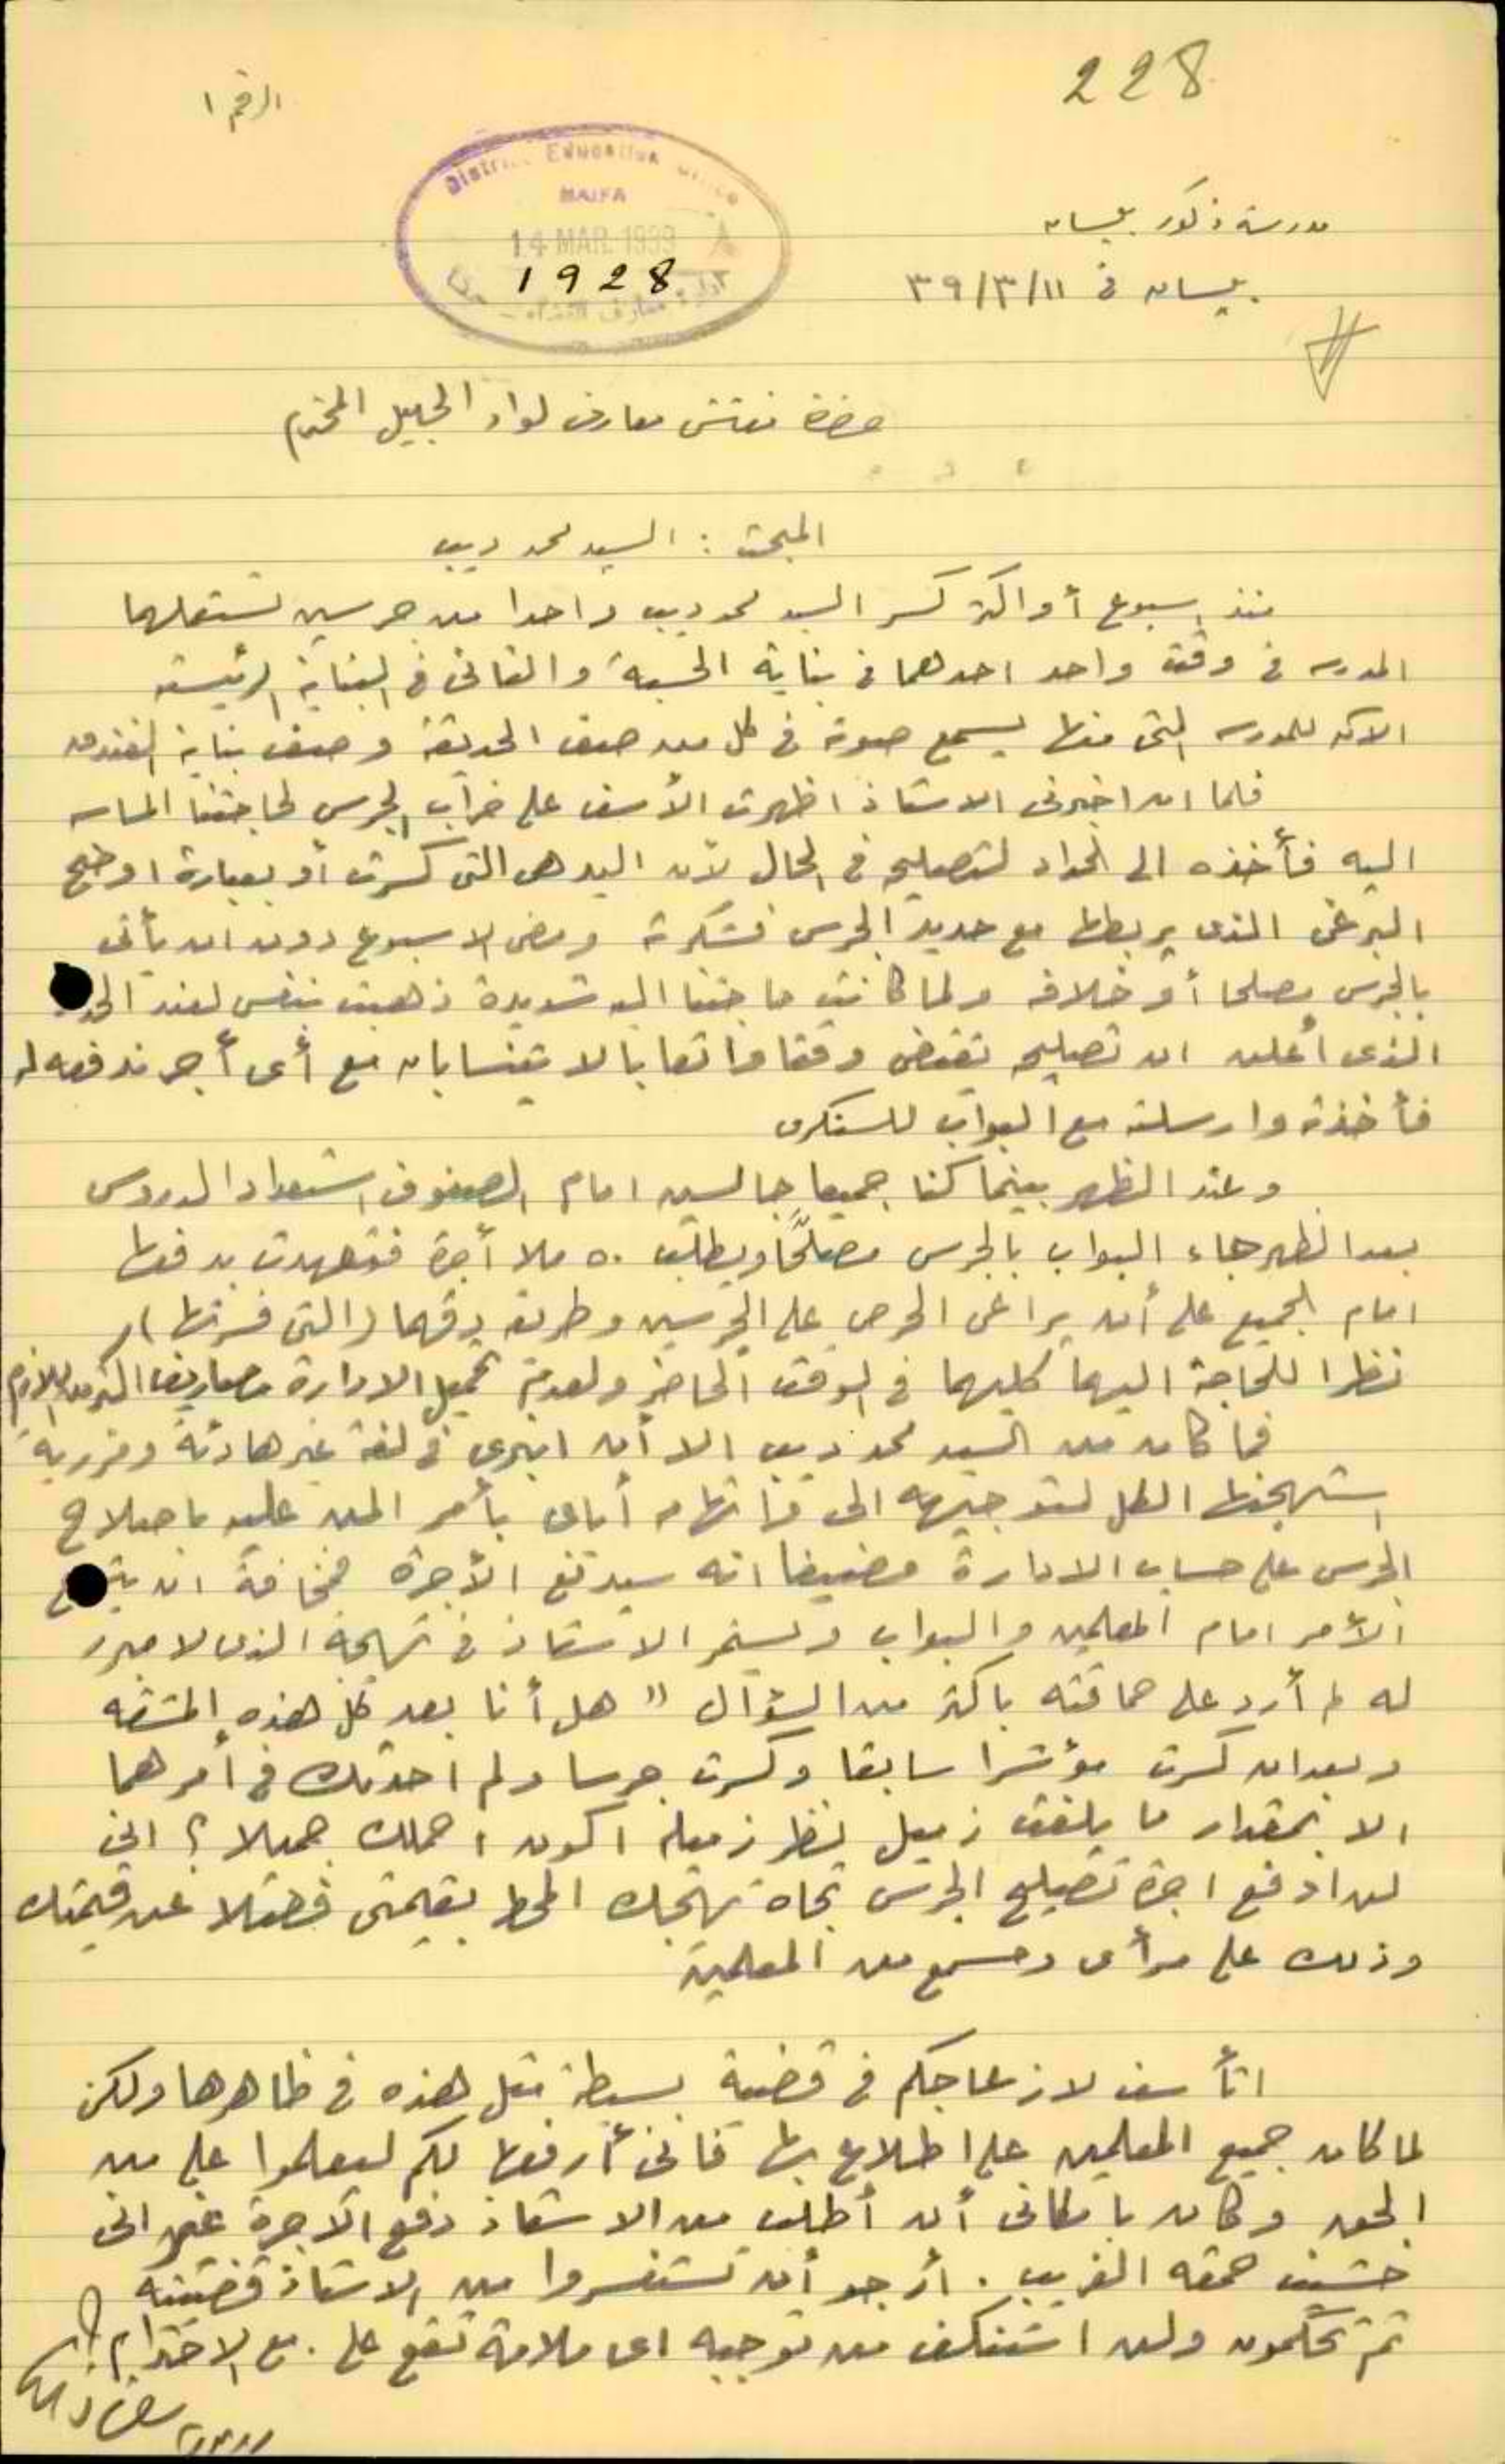 228
الرقم ١
District Education Office
HAIFA
14 MAR 1939
1928
ادارة معارف اللواء
مدرسة ذكور بيسان
بيسان في ١١/٣/٣٩
حضرة مفتش معارف لواء الجليل المحترم
المبحث : السيد محمد ديب
منذ اسبوع أو اكثر كسر السيد محمد ديب واحدا من جرسين تستعملهما
المدرسه في وقت واحد احدهما في بناية الحسبة والثاني في البناية الرئيسته
الاكبر للمدرسه التي منها يسمع صوته في كل من صف الحديقة وصف بناية الفندق
فلما ان اخبرني الاستاذ اظهرت الأسف على خراب الجرس لحاجتنا الماسه
اليه فأخذه الى الحداد لتصليحه في الحال لأن اليد هي التي كسرت أو بعبارة اوضح
البرغي الذي يربطها مع حديد الجرس فشكرته ومضى الاسبوع دون ان يأتي
بالجرس مصلحا أو خلافه ولما كانت حاجتنا اليه شديدة ذهبت بنفسي لعند
الذي أعلن ان تصليحه يقتضي وقتا واتعابا لا يتناسبان مع أي أجر ندفعه له
فأخذته وارسلته مع البواب للسنكري
وعند الظهر بينما كنا جميعا جالسين امام الصفوف استعدادا لدروس
بعد الظهر جاء البواب بالجرس مصلّحًا ويطلب ٥٠ ملا أجرة فتعهدت بدفعها
امام الجميع على أن يراعى الحرص على الجرسين وطريقة دقهما (التي فسرتها)
نظرا للحاجة اليهما كليهما في الوقت الحاضر ولعدم تحميل الادارة مصاريف اكثر من اللازم
فما كان من السيد محمد ديب الا أن انبرى في لغة غير هادئة ومزرية
استهجنها الكل لتوجيهه الى واتهامه أياي بأمر المن عليه باصلاح
الجرس على حساب الادارة مضيفا انه سيدفع الأجرة فمخافة ان
الأمر امام المعلمين والبواب ويستمر الاستاذ في تهجمه الذي لا مبرر
له لم أرد على حماقته باكثر من السؤال "هل أنا بعد كل هذه المشقه
وبعد ان كسرت مؤشرا سابقا وكسرت جرسا ولم احدثك في أمرهما
الا بمقدار ما يلفت زميل نظر زميله اكون احملك جميلا؟ اني
لن ادفع اجرة تصليح الجرس تجاه تهجمك المحط بقيمتي فضلا عن قيمتك
وذلك على مرأى ومسمع من المعلمين
اتأسف لازعاجكم في قضية بسيطة مثل هذه في ظاهرها ولكن
لما كان جميع المعلمين على اطلاع بها فاني أرفعها لكم لتعلموا على من
الحق وكان بامكاني أن أطلب من الاستاذ دفع الأجرة غير اني
خشيت حمقه الغريب . أرجو أن تستفسروا من الاستاذ قضيته
ثم تحكمون ولن استنكف من توجيه اي ملامة تقع علي . مع الاحترام